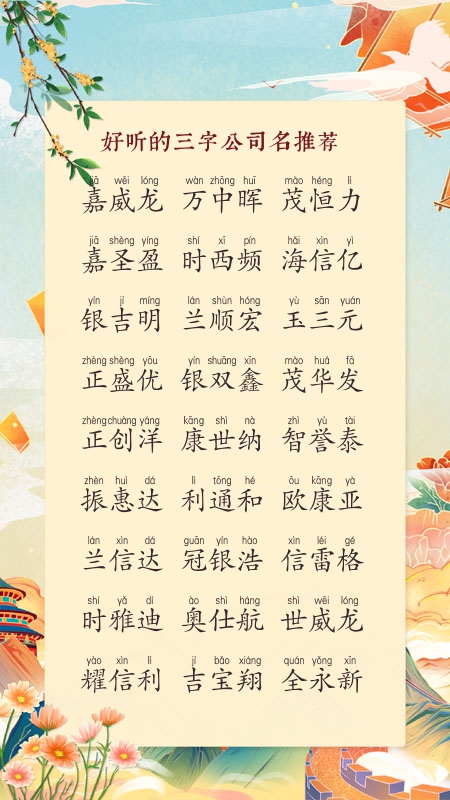 好听的三字公司名推荐
jiā wēi lóng wàn zhōng huī mào héng lì
嘉威龙 万中晖 茂恒力
jiā shèng yíng shí xī pín hǎi xìn yì
嘉圣盈 时西频 海信亿
yín jí míng lán shùn hóng yù sān yuán
银吉明 兰顺宏 玉三元
zhèng shèng yōu yín shuāng xīn mào huá fā
正盛优 银双鑫 茂华发
zhèng chuàng yáng kāng shì nà zhì yù tài
正创洋 康世纳 智誉泰
zhèn huì dá lì tōng hé ōu kāng yà
振惠达 利通和 欧康亚
lán xìn dá guān yín hào xìn léi gé
兰信达 冠银浩 信雷格
shí yǎ dí ào shì háng shì wēi lóng
时雅迪 奥仕航 世威龙
yào xìn lì jí bǎo xiáng quán yǒng xīn
耀信利 吉宝翔 全永新